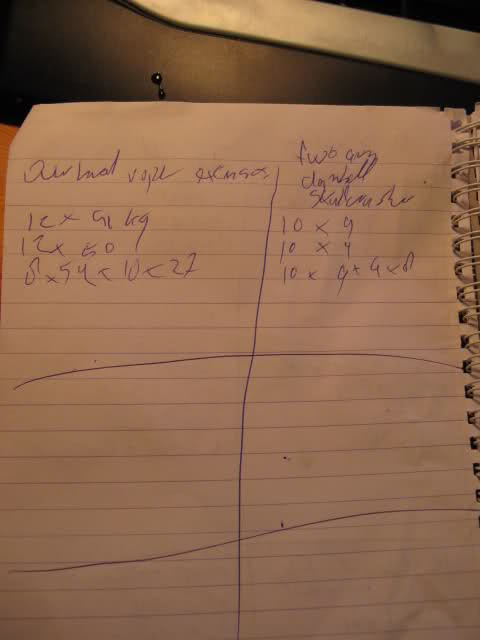 overhead rope extensions
12 x 41 kg
12 x 50
8 x 54 x 10 x 27
two arm
dumbell
skullcrusher
10 x 9
10 x 9
10 x 9 x 4 x 8